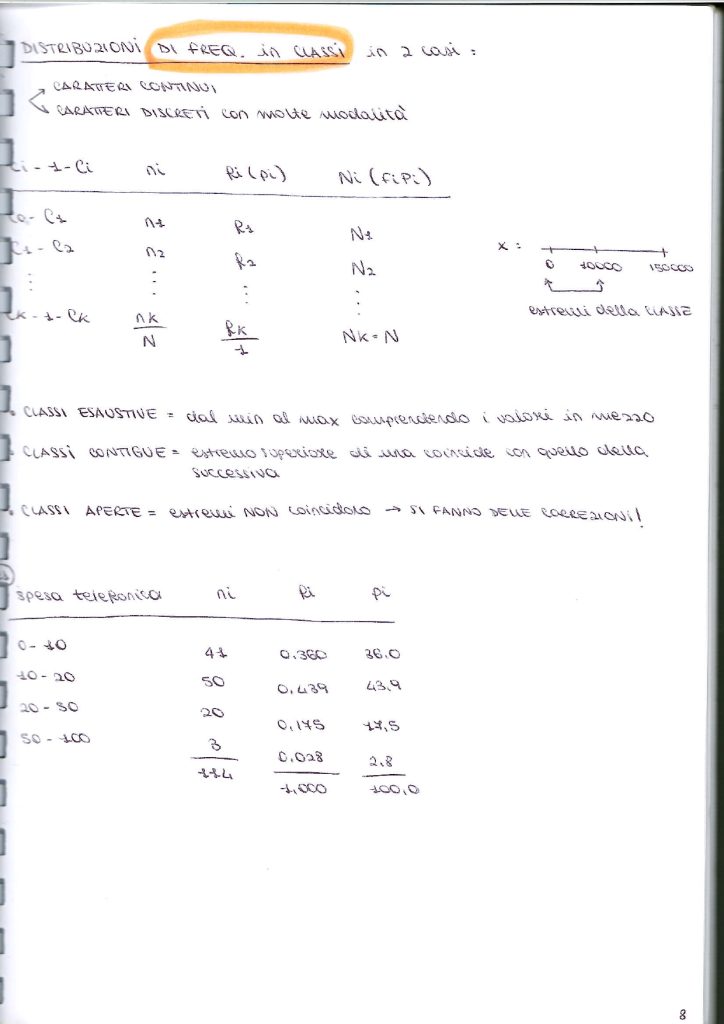 DISTRIBUZIONI DI FREQ. in CLASSI in 2 casi :
CARATTERI CONTINUI
CARATTERI DISCRETI con molte modalità
Ci - 1 - Ci ni fi (pi) Ni (FiPi)
C0 - C1 n1 f1 N1
C1 - C2 n2 f2 N2
⋮ ⋮ ⋮ ⋮
Ck - 1 - Ck nk fk Nk = N
N 1
x :
0 10000 150000
estremi della CLASSE
• CLASSI ESAUSTIVE = dal min al max comprendendo i valori in mezzo
• CLASSI CONTIGUE = estremo superiore di una coincide con quello della
successiva
• CLASSI APERTE = estremi NON coincidono → SI FANNO DELLE CORREZIONI!
spesa telefonica ni fi pi
0 - 10 41 0.360 36.0
10 - 20 50 0,439 43,9
20 - 50 20 0,175 17,5
50 - 100 3 0.028 2,8
114 1,000 100,0
8